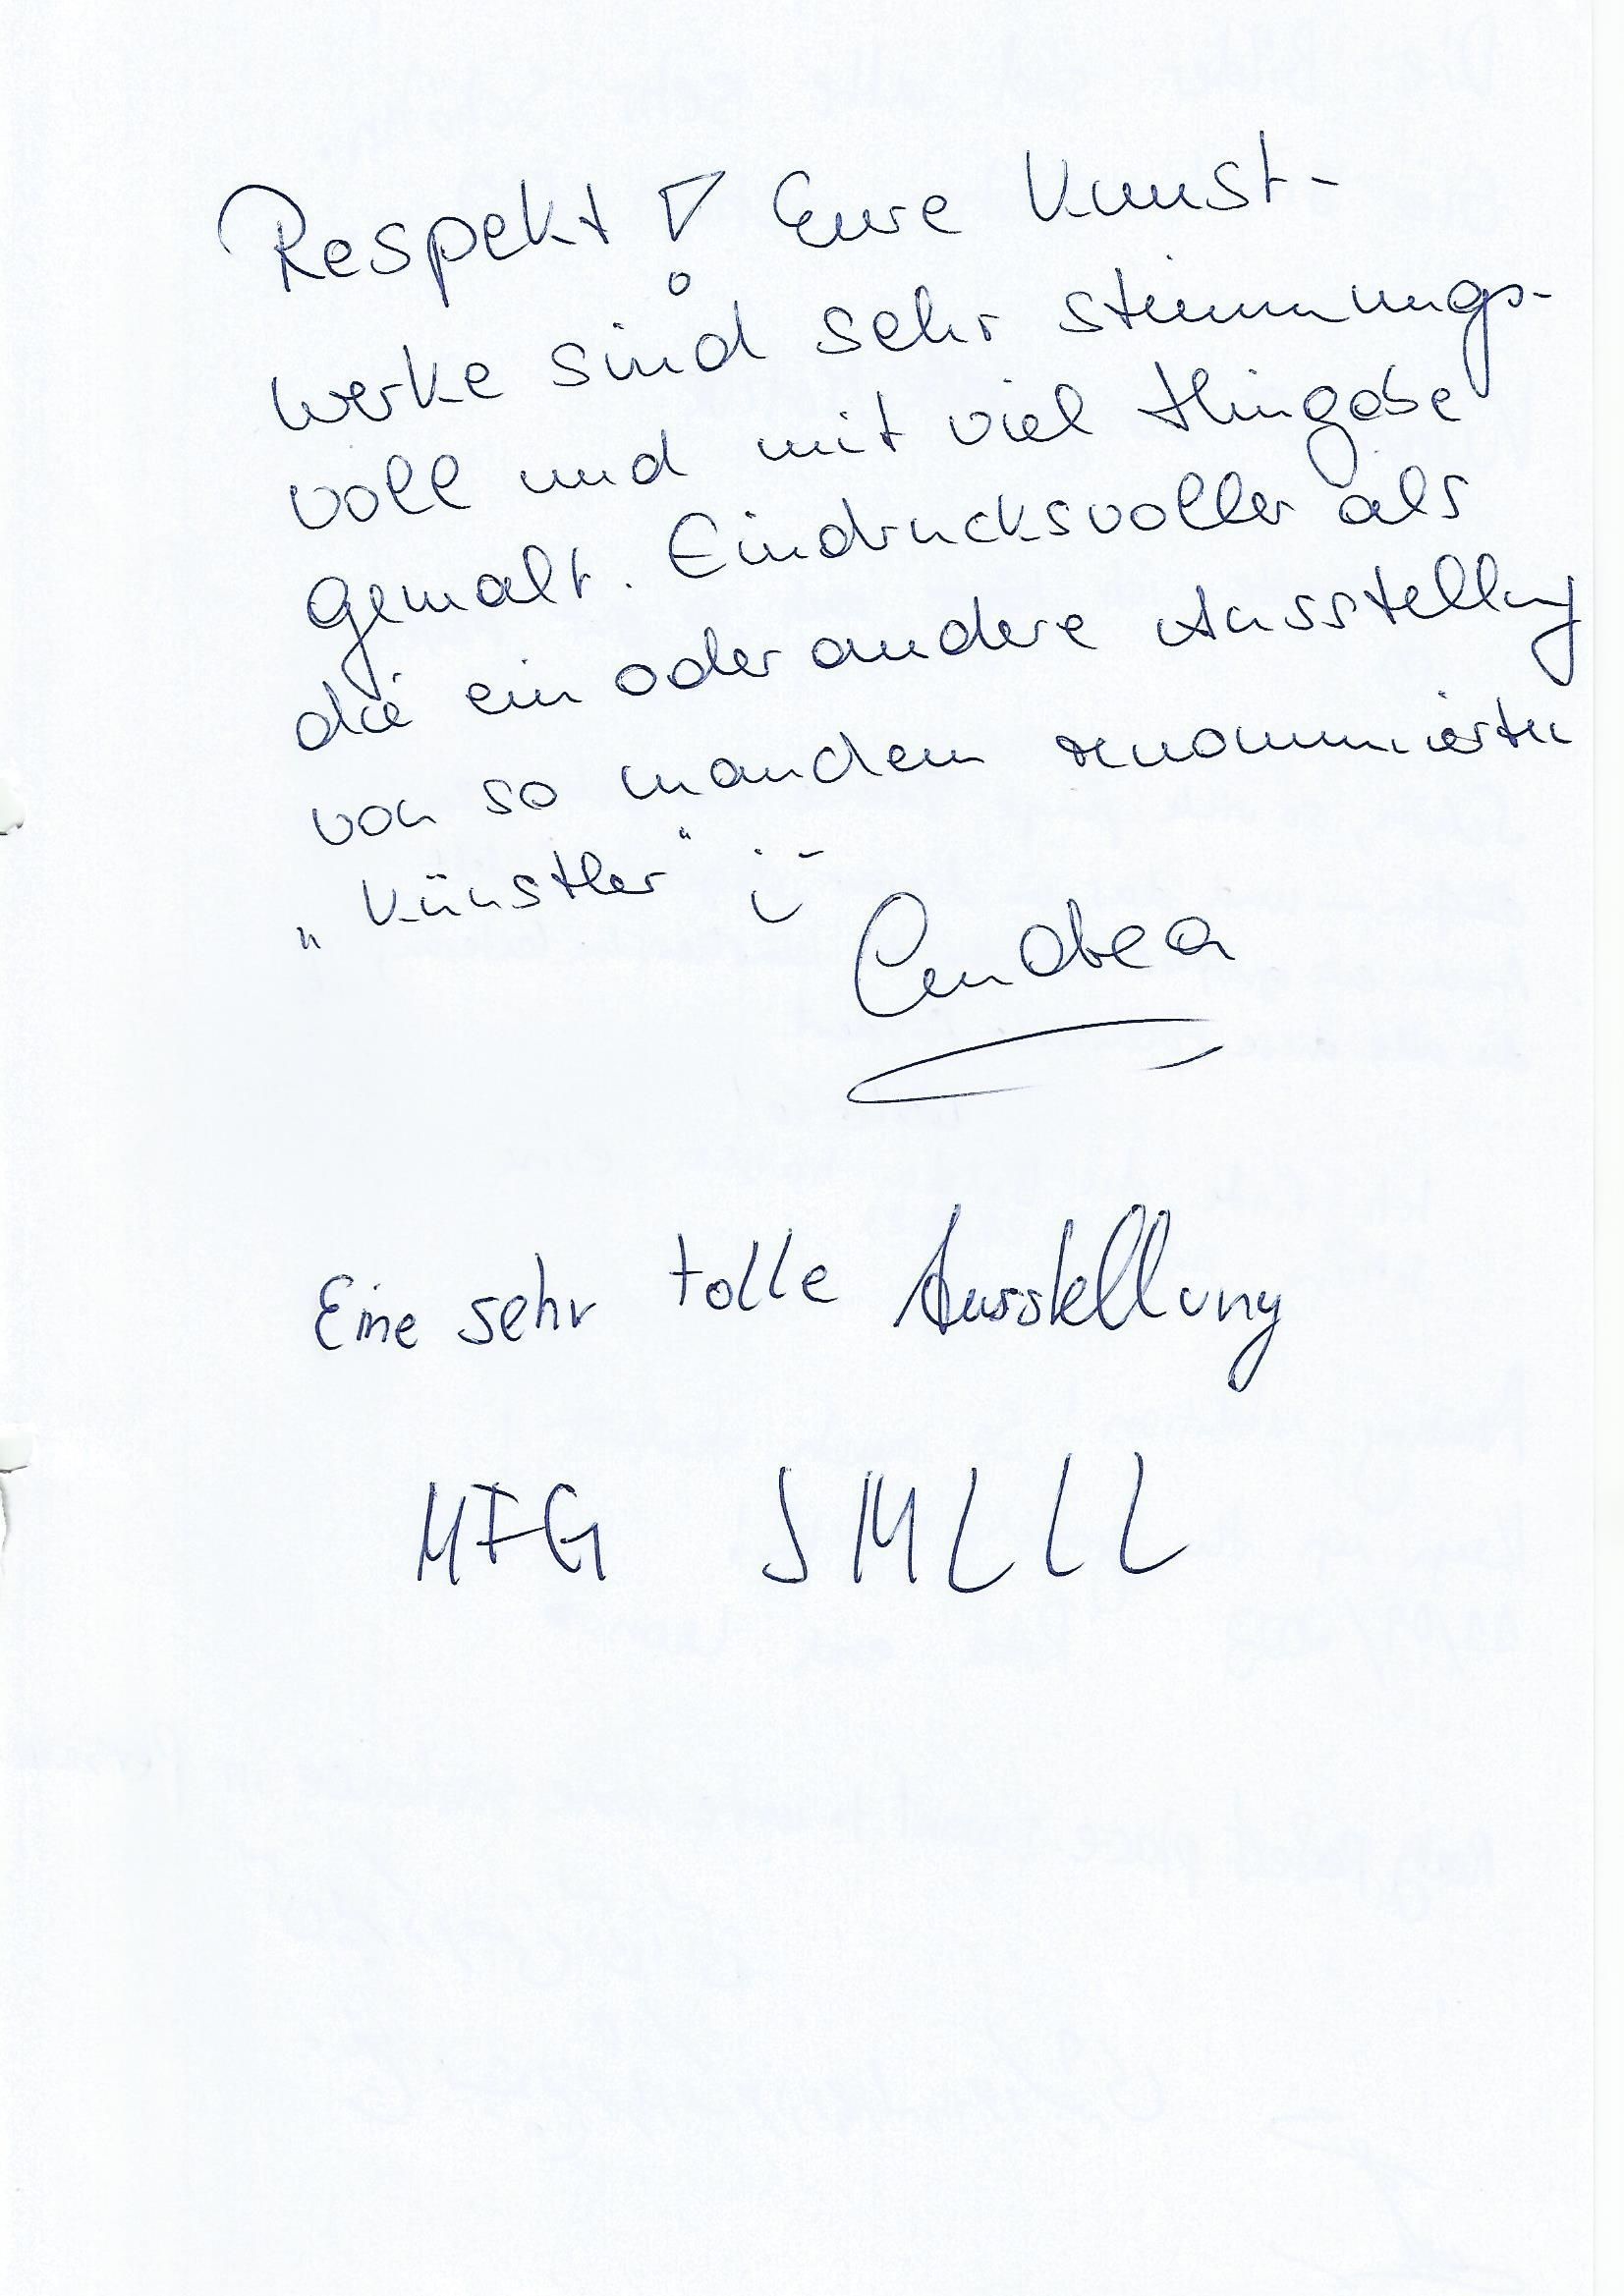 Respekt! Eure Kunst-
werke sind sehr stimmungs-
voll und mit viel Hingabe
gemalt. Eindrucksvoller als
die ein oder andere Ausstellung
von so manchem renommierten
„Künstler“ :-)
Andrea
Eine sehr tolle Ausstellung
MFG SMLLL